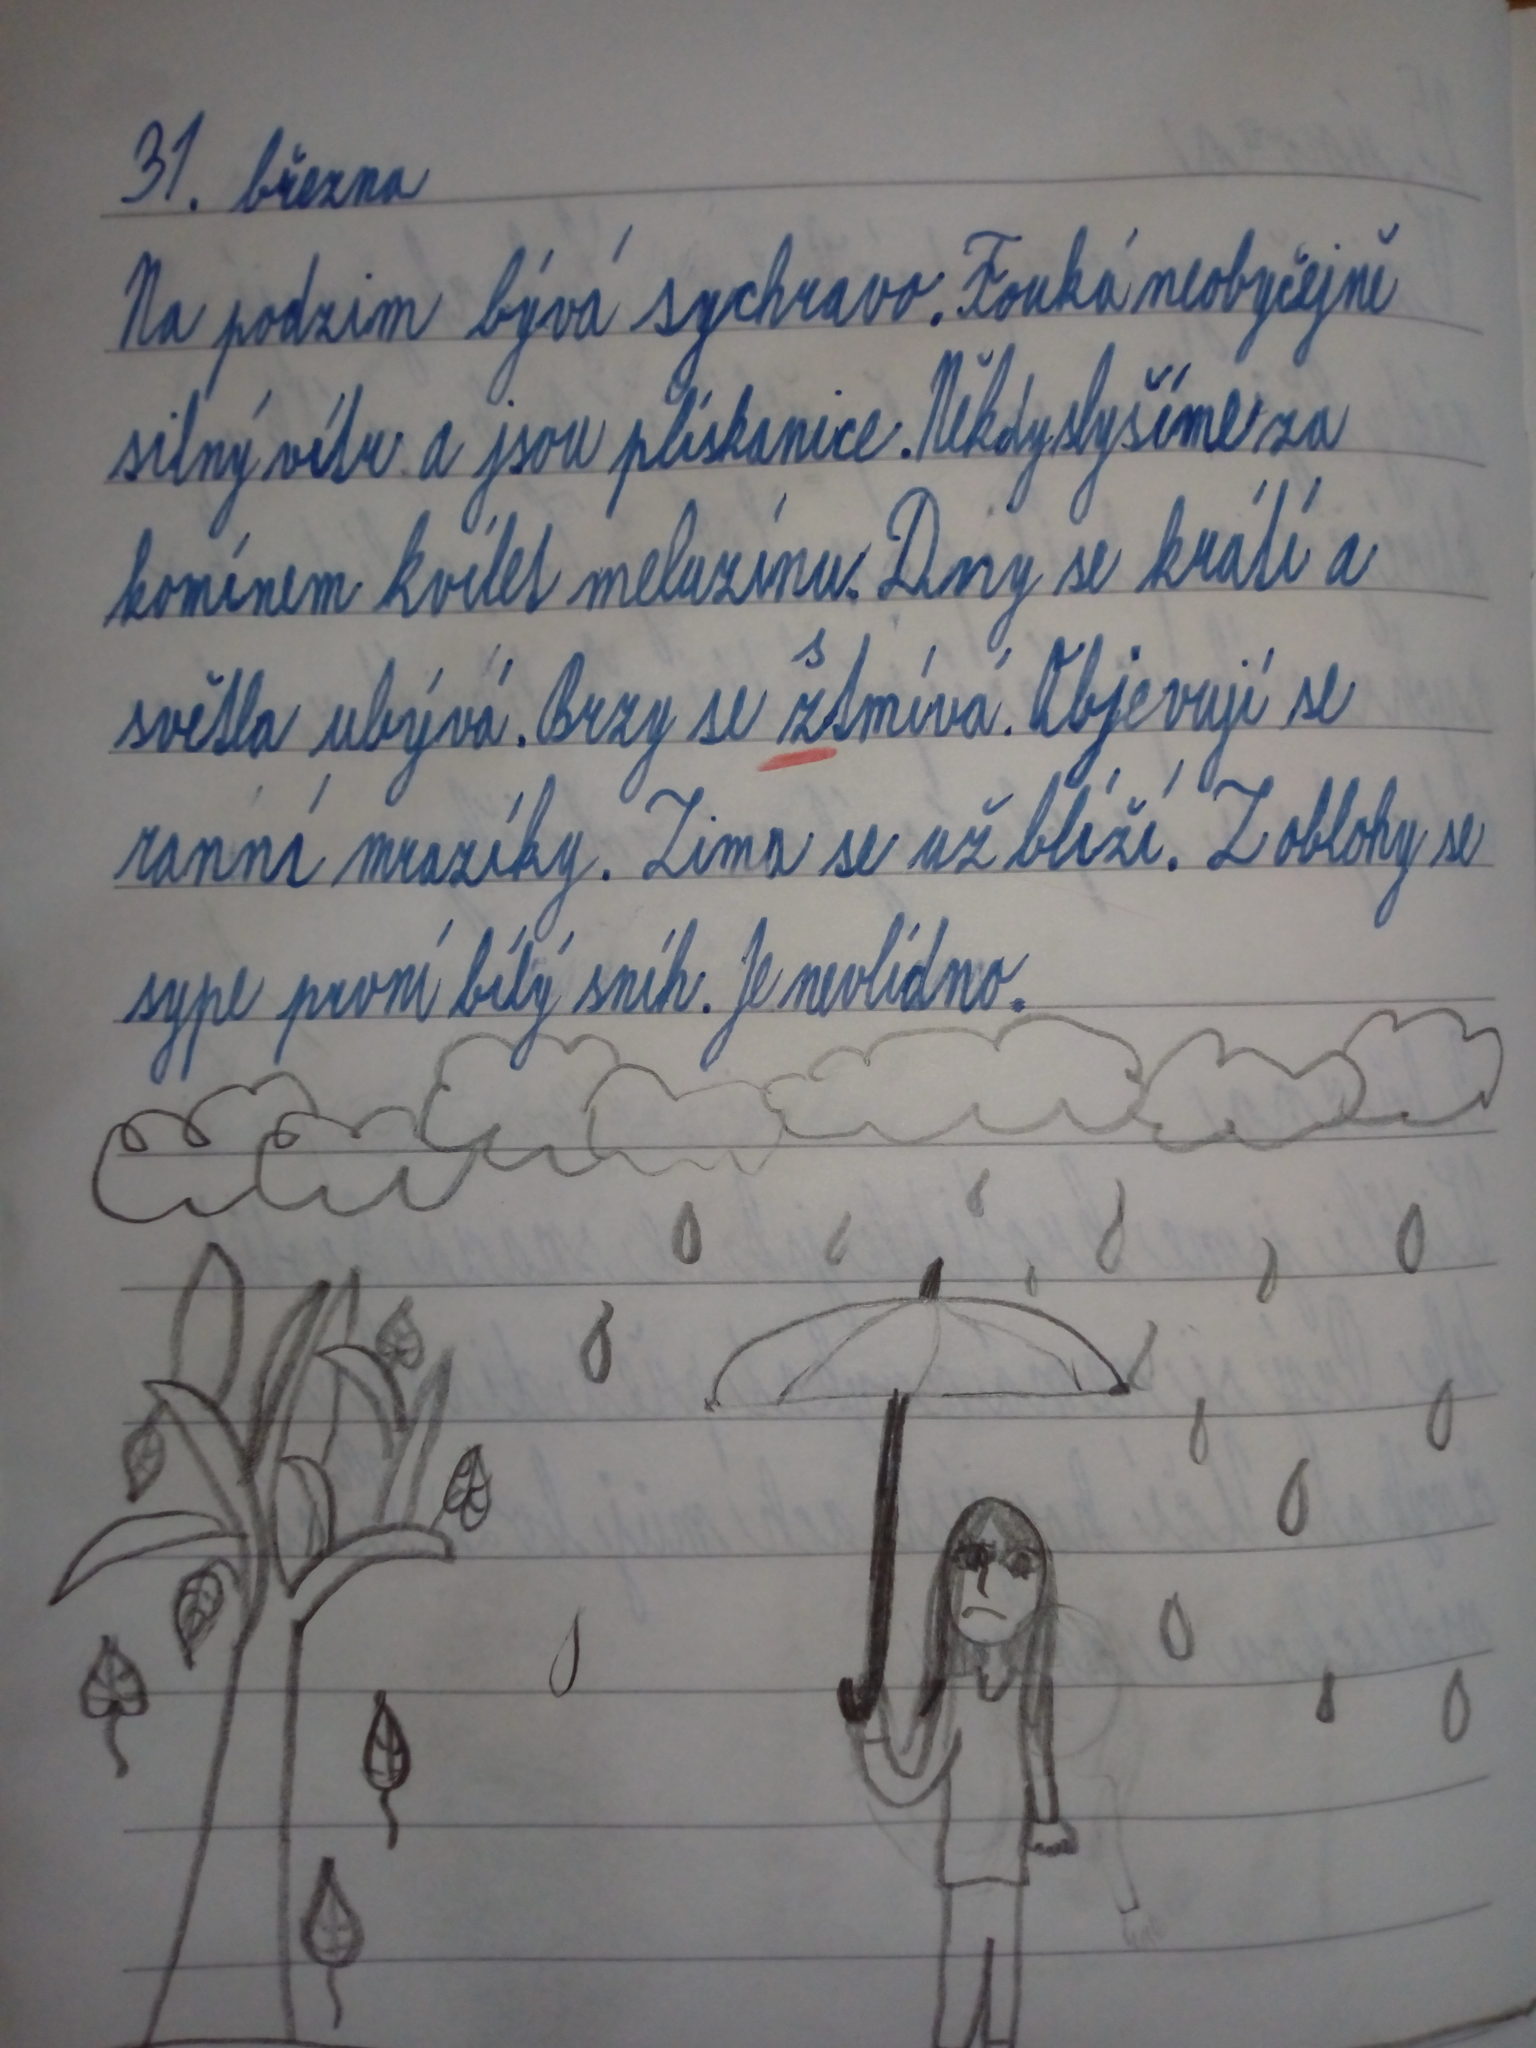 31. března
Na podzim bývá sychravo. Fouká neobyčejně
silný vítr a jsou plískanice. Někdy slyšíme za
komínem kvílet meluzínu. Dny se krátí a
světla ubývá. Brzy se stmívá. Objevují se
ranní mrazíky. Zima se už blíží. Z oblohy se
sype první bílý sníh. Je nevlídno.